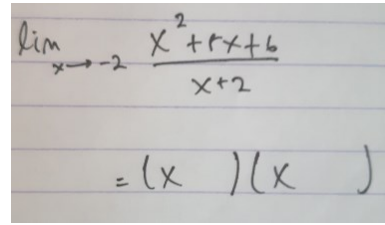 lim x→-2 (x² + 5x + 6)/(x+2)
= (x )(x )